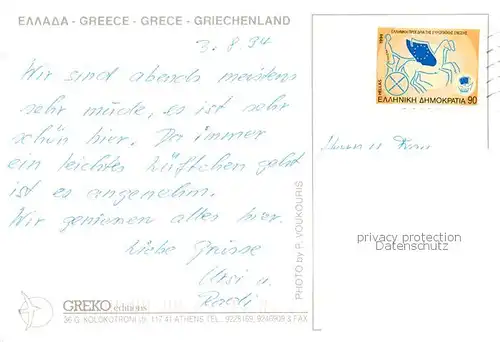 ΕΛΛΑΔΑ - GREECE - GRECE - GRIECHENLAND
3.8.94
Wir sind abends meistens
sehr müde, es ist sehr
schön hier. Da immer
ein leichtes Lüftchen geht
ist es angenehm.
Wir geniessen alles hier.
Liebe Grüsse
Ursi u.
Ruedi
PHOTO by P. VOUKOURIS
GREKO editions
36 G. KOLOKOTRONI str. 117 41 ATHENS TEL. 9226169, 9246908 & FAX
ΕΛΛΗΝΙΚΗ ΠΡΟΕΔΡΙΑ ΤΗΣ ΕΥΡΩΠΑΪΚΗΣ ΕΝΩΣΗΣ
HELLAS
ΕΛΛΗΝΙΚΗ ΔΗΜΟΚΡΑΤΙΑ 90
Herrn u Frau
privacy protection